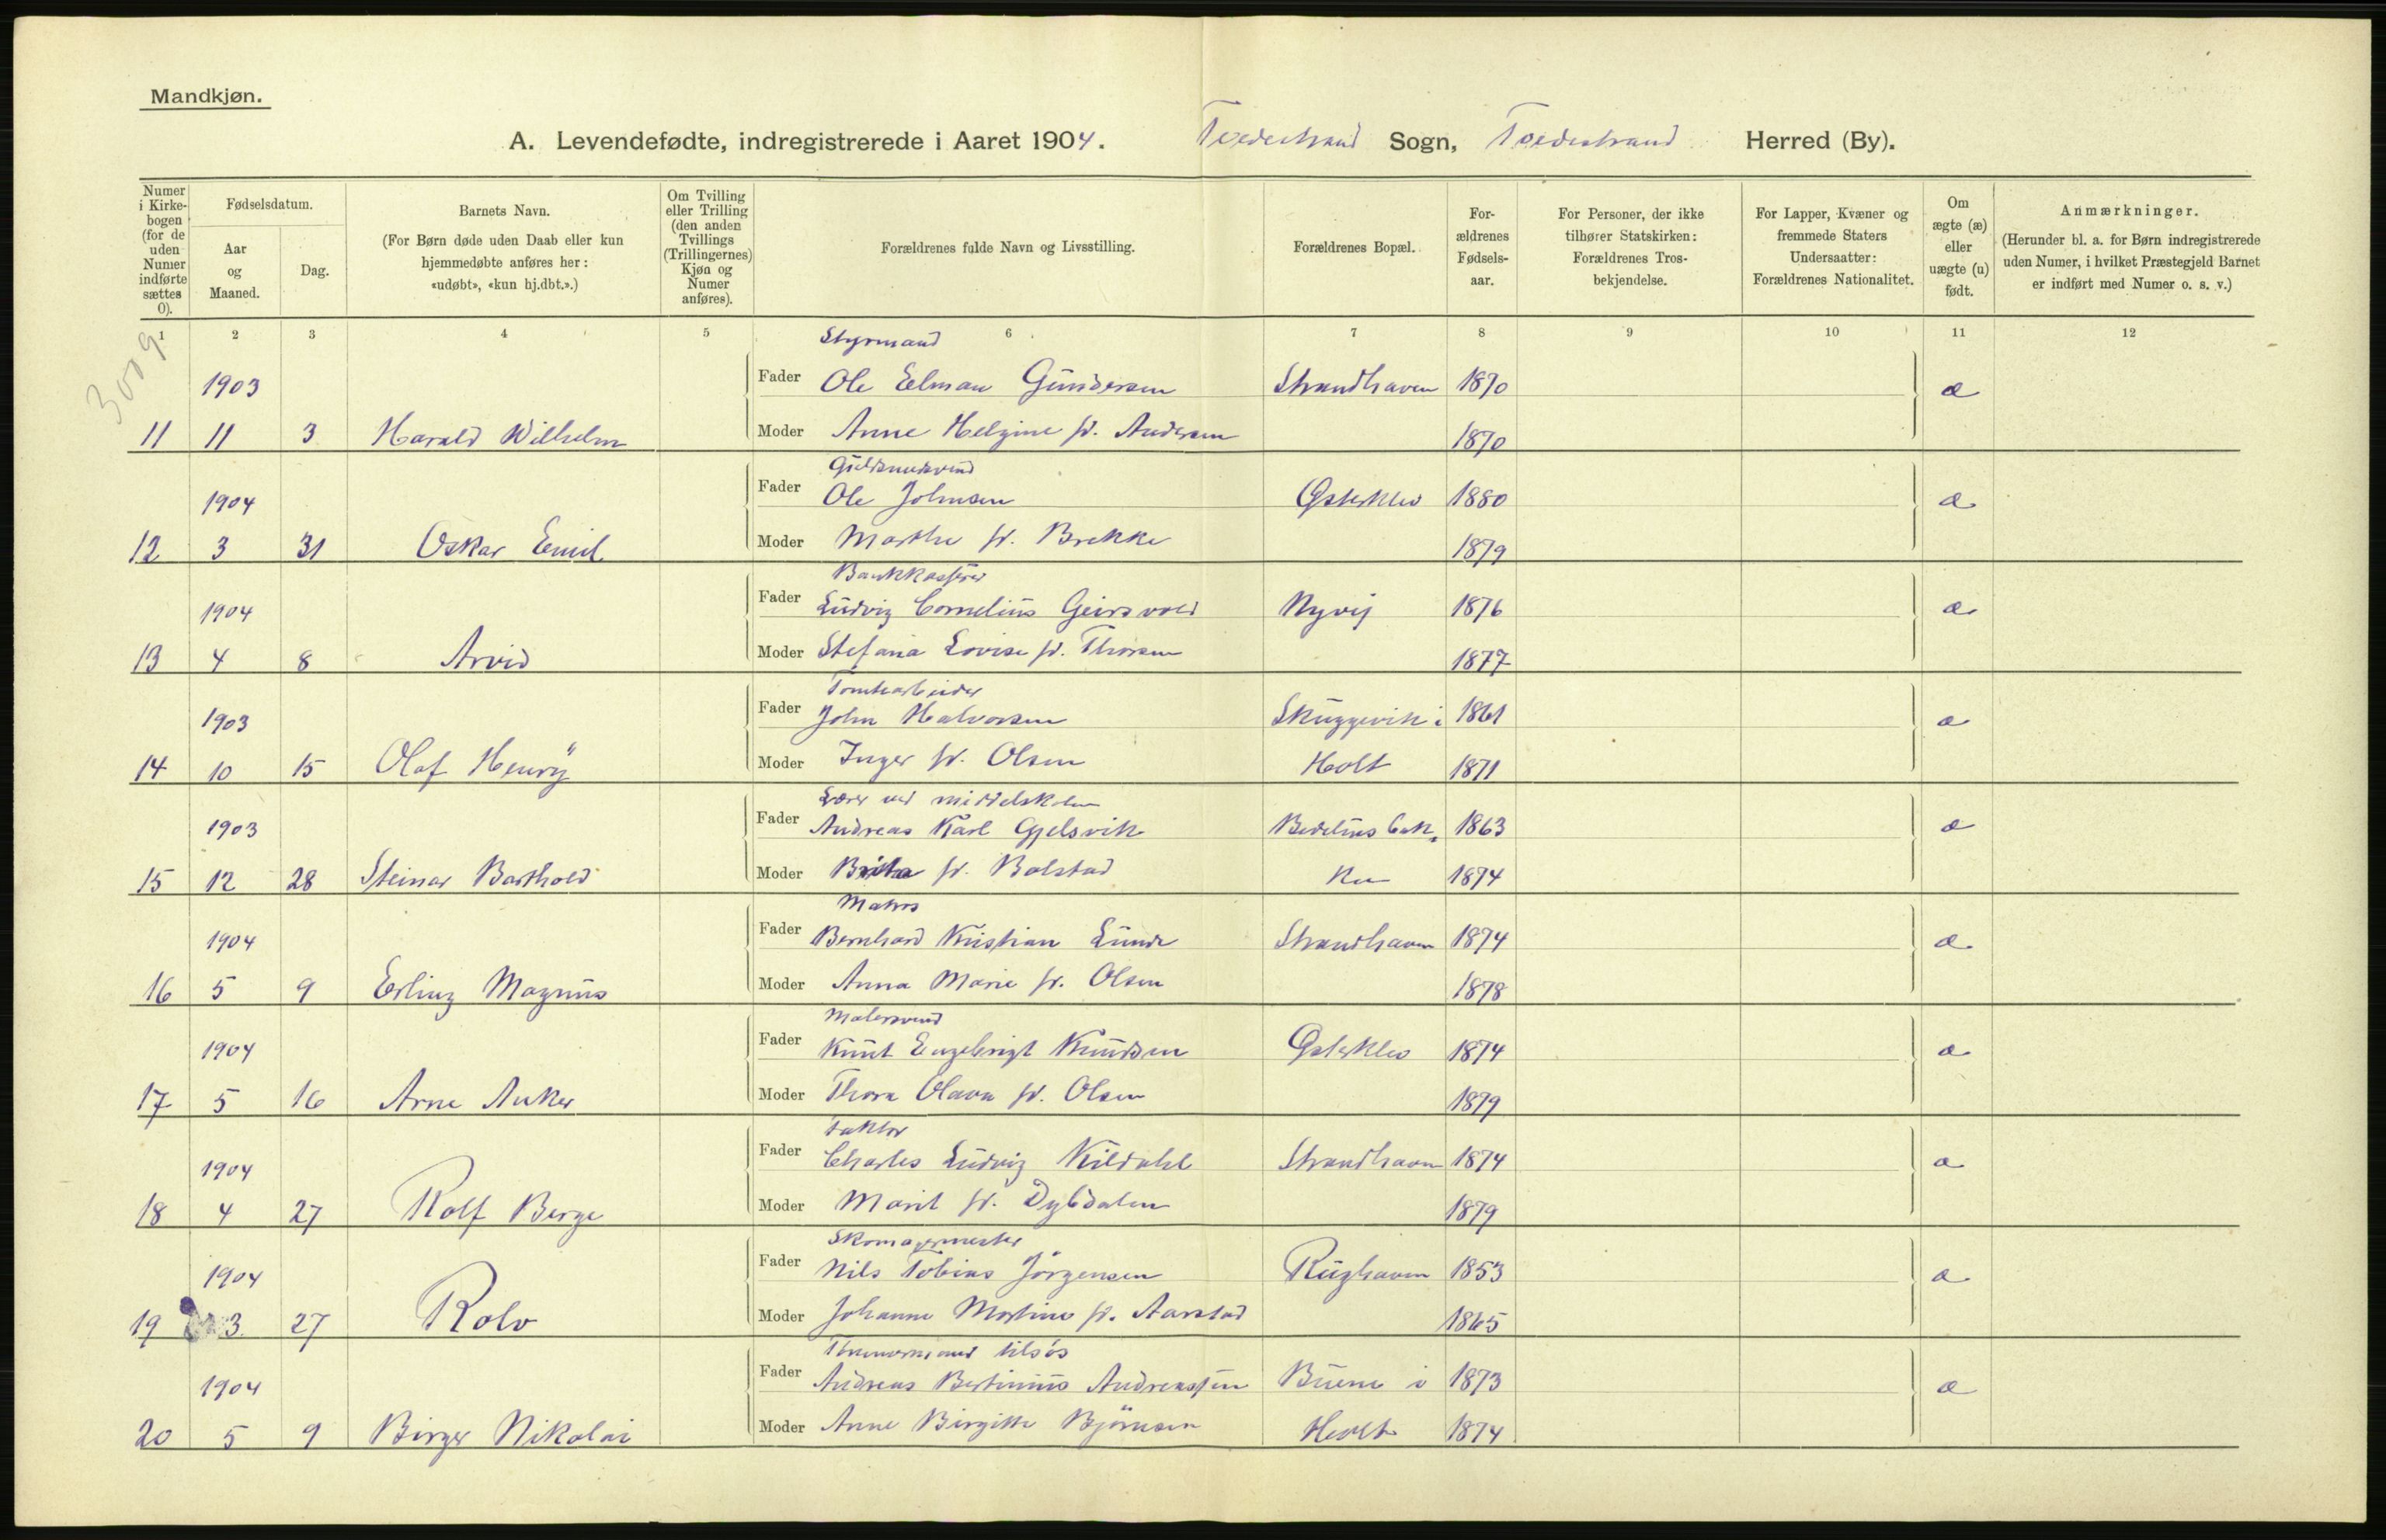 Mandkjøn.
A. Levendefødte, indregistrerede i Aaret 1904. Tvedestrand Sogn, Tvedestrand Herred (By).
Numer i Kirkebogen (for de uden Numer indførte sættes 0).
Fødselsdatum.
Aar og Maaned.
Dag.
Barnets Navn.
(For Børn døde uden Daab eller kun hjemmedøbte anføres her: «udøbt», «kun hj.dbt.».)
Om Tvilling eller Trilling (den anden Tvillings (Trillingernes) Kjøn og Numer anføres).
Forældrenes fulde Navn og Livsstilling.
Forældrenes Bopæl.
Forældrenes Fødselsaar.
For Personer, der ikke tilhører Statskirken: Forældrenes Trosbekjendelse.
For Lapper, Kvæner og fremmede Staters Undersaatter: Forældrenes Nationalitet.
Om ægte (æ) eller uægte (u) født.
Anmærkninger.
(Herunder bl. a. for Børn indregistrerede uden Numer, i hvilket Præstegjeld Barnet er indført med Numer o. s. v.)
1 2 3 4 5 6 7 8 9 10 11 12
3009
Styrmand
1903 Fader Ole Edman Gundersen Strandhaven 1870 æ
11 11 3 Harald Wilhelm Moder Anne Helgine f. Andersen 1870
Guldsmedsvend
1904 Fader Ole Johnsen Østerklev 1880 æ
12 3 31 Oskar Emil Moder Marthe f. Brekke 1879
Bankkasserer
1904 Fader Ludvig Cornelius Geirsvold Nyvej 1876 æ
13 4 8 Arvid Moder Stefana Lovise f. Thorsen 1877
Tomtearbeider
1903 Fader John Halvorsen Skuggevik i 1861 æ
14 10 15 Olaf Henry Moder Inger f. Olsen Holt 1871
Lærer ved middelskolen
1903 Fader Andreas Karl Gjelsvik 1863 æ
15 12 28 Steinar Barthold Moder Brita f. Bolstad 1874
Matros
1904 Fader Bernhard Kristian Lunde Strandhaven 1874 æ
16 5 9 Erling Magnus Moder Anna Marie f. Olsen 1878
Malersvend
1904 Fader Knut Engebrigt Knudsen Østerklev 1874 æ
17 5 16 Arne Anker Moder Thora Olava f. Olsen 1879
Faktor
1904 Fader Charles Ludvig Kildahl Strandhaven 1874 æ
18 4 27 Rolf Berge Moder Marit f. Dybdalen 1879
Skomagermester
1904 Fader Nils Tobias Jörgensen Rughaven 1853 æ
19 3 27 Rolv Moder Johanne Martine f. Aarstad 1865
Tømmermand tilsös
1904 Fader Andreas Bertinius Andreassen Buene i 1873 æ
20 5 9 Birger Nikolai Moder Anne Birgitte Björnsen Holt 1874